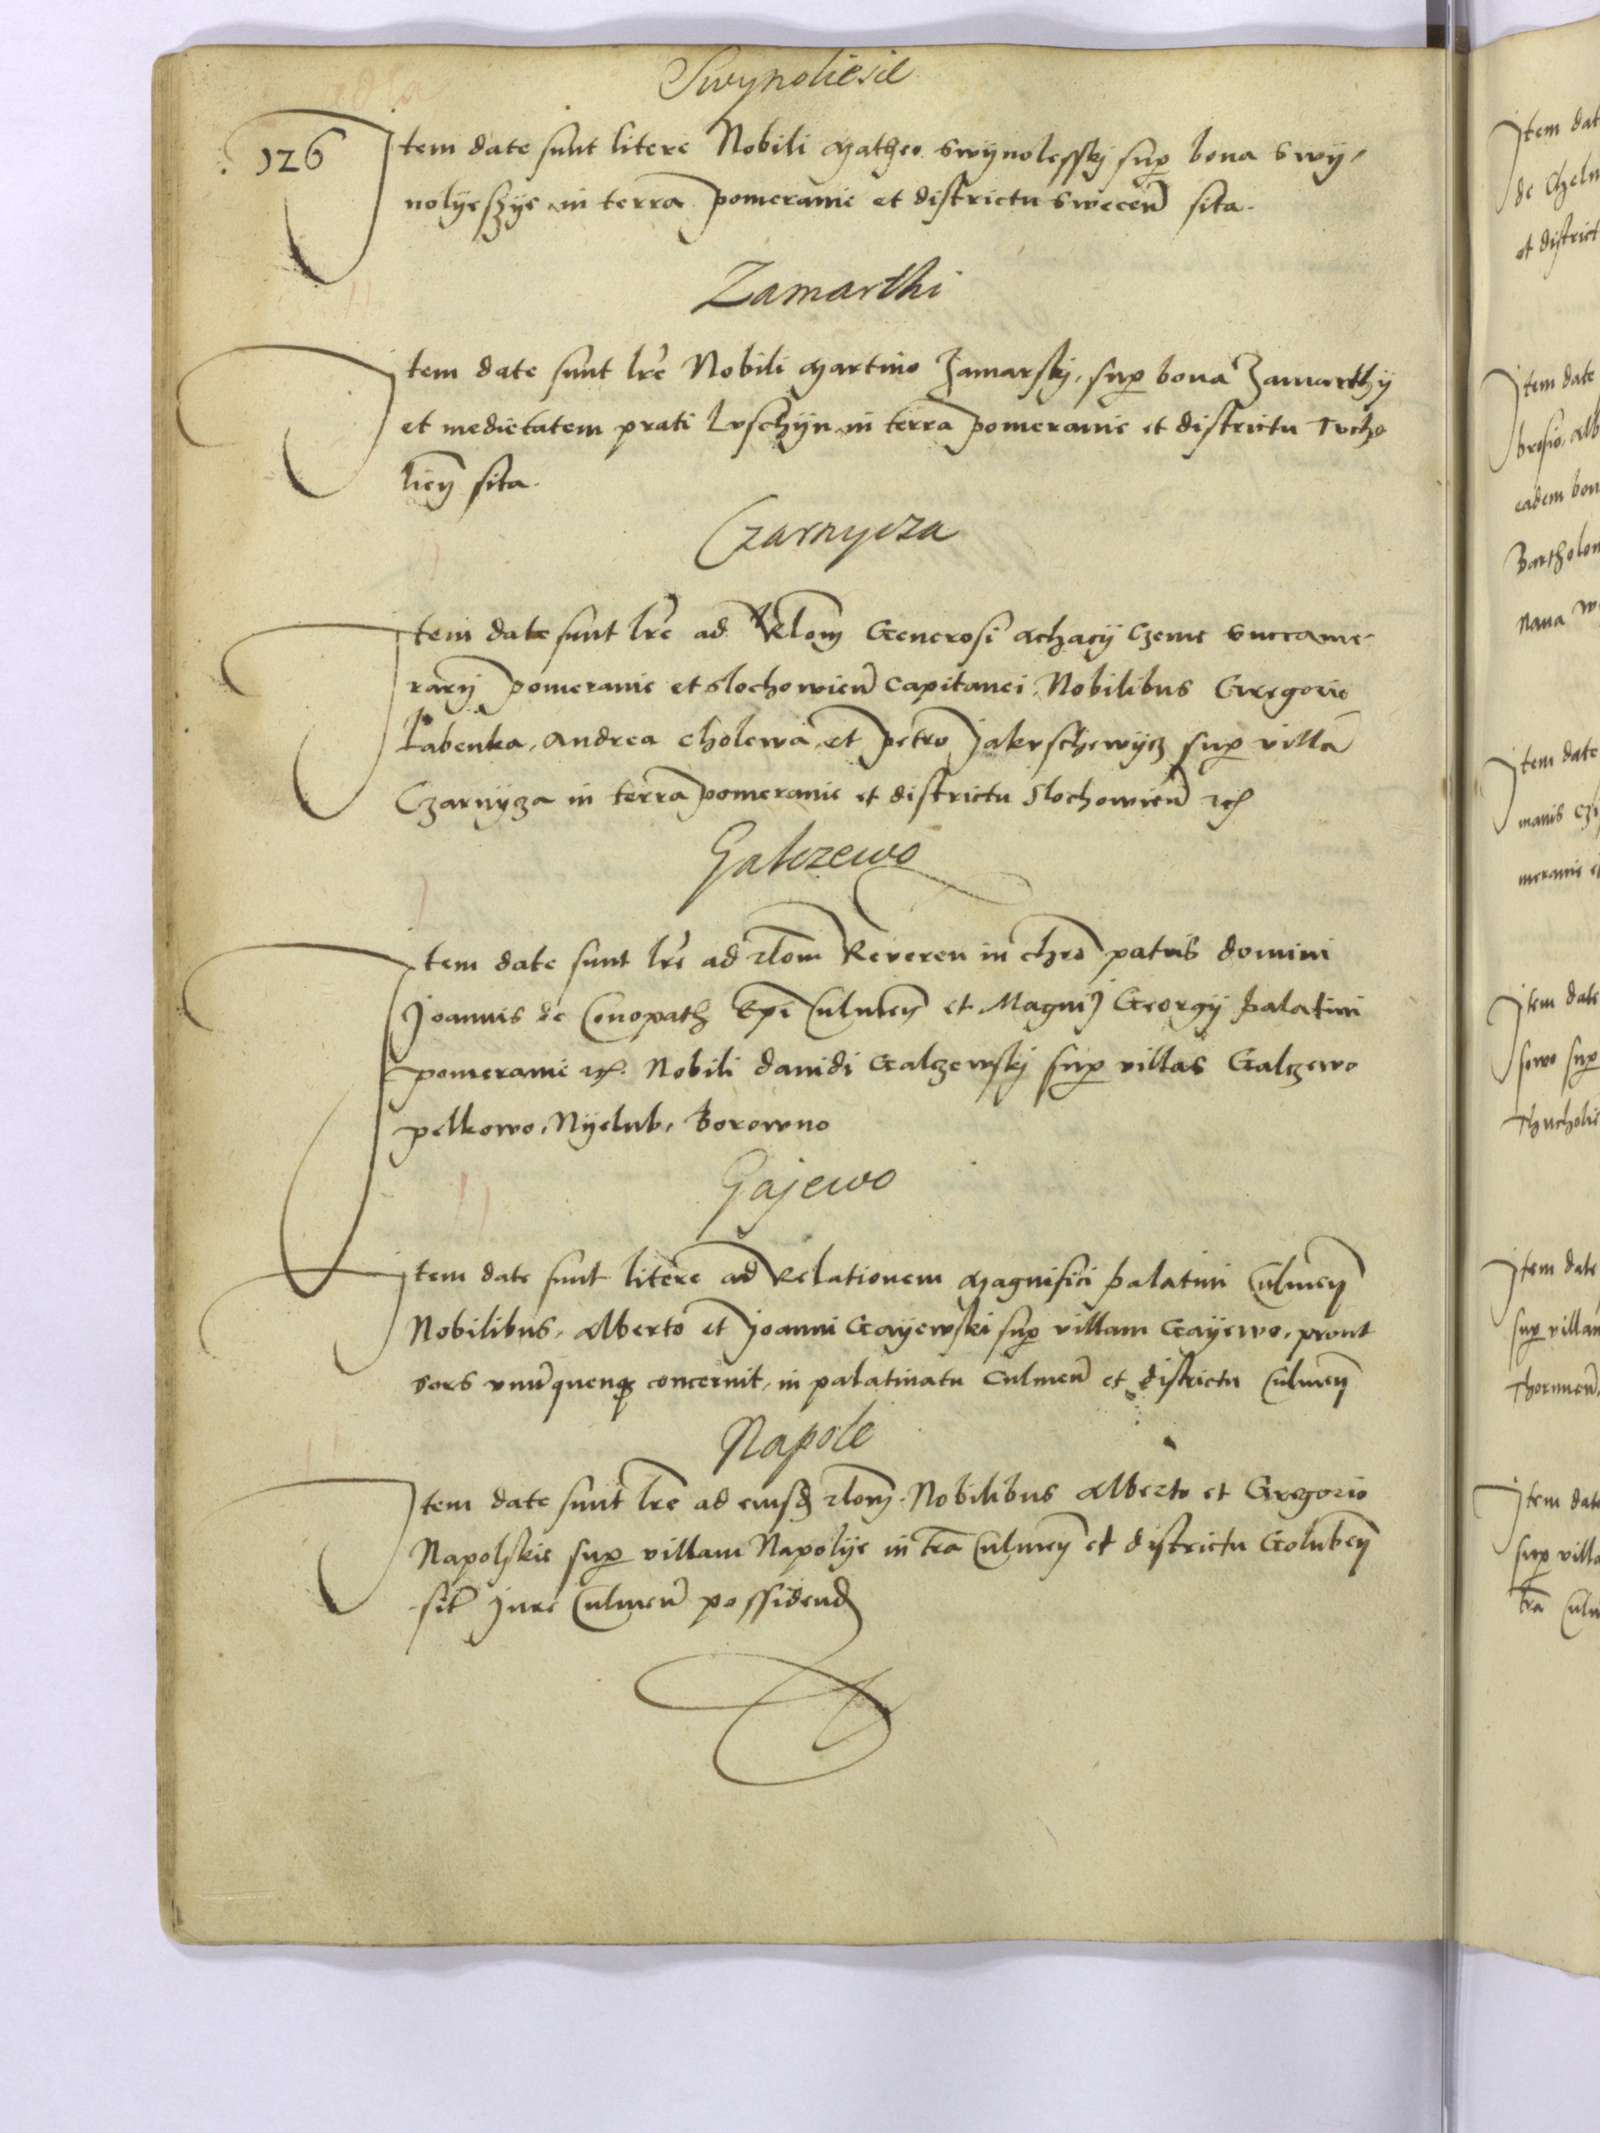 Swynoliesie
126
Item date sunt litere Nobili Matheo Swynolessky sup bona Swy/
nolyeszye in terra pomeranie et districtu Swecen sita.
Zamarthi
Item date sunt lre Nobili Martino Zamarsky, sup bona Zamarthy
et medietatem prati Luschyn in terra pomeranie et districtu Tucho
lien sita.
Czarnycza
Item date sunt lre ad Rlom Generosi Achacy Czeme Succame
rarij pomeranie et Slochowien Capitanei Nobilibus Gregorio
Labenka, Andrea Cholewa, et petro Jakuschewycz sup villa
Czarnyza in terra pomeranie et districtu Slochowien
Galczewo
Item date sunt lre ad rlom Reveren in chro patris domini
Joannis de Conopath Epi Culmen et Magnij Georgij palatini
pomeranie Nobili davidi Galczewsky sup villas Galczewo
pelkowo, Nyelub, Borowno
Gajewo
Item date sunt litere ad Relationem Magnifici palatini Culmen
Nobilibus, Alberto et Joanni Gayewski sup villam Gayewo, prout
sors unumquenq concernit, in palatinatu Culmen et districtu Culmen
Napole
Item date sunt lre ad eiusd rlom. Nobilibus Alberto et Gregorio
Napolskie sup villam Napolye in tra Culmen et districtu Goluben
sit Jure Culmen possidend
Item dat
de Cheln
et district
Item date
brosio, Alb
eadem bon
Bartholom
nana
Item date
manis
meranie et
Item date
sewo sup
Thucholie
Item date
sup villam
Thorunen,
Item dat
sup villa
tra Culm